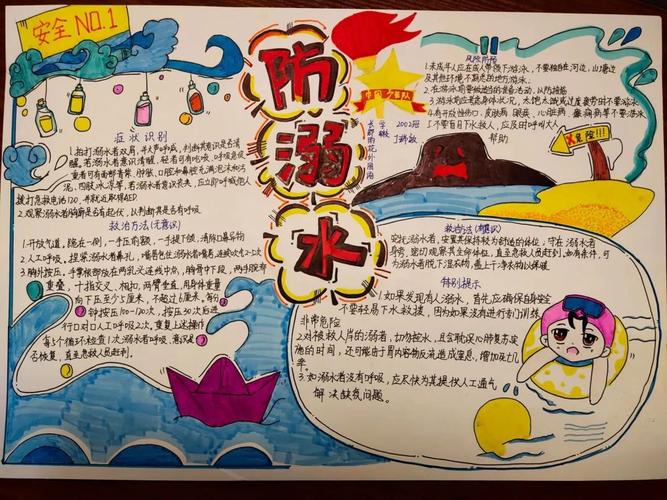 安全 NO.1
防溺水
症状识别
1.拍打溺水者双肩,并大声呼喊,判断其意识是否清
醒,若溺水者意识清醒,轻者可有呛咳,呼吸急促
重者可有面部青紫、肿胀、口腔和鼻腔充满泡沫和污
泥,四肢冰凉等,若溺水者意识丧失,应立即呼喊他人
拨打急救电话120,并就近取得AED
2.观察溺水者胸廓是否有起伏,以判断其是否有呼吸
救治方法(无意识)
1.开放气道,跪在一侧,一手压前额,一手提下颌,清除口鼻异物
2.人工呼吸,捏紧溺水者鼻孔,嘴唇包住溺水者嘴唇,连续吹气2-5次
3.胸外按压,手掌根部放在两乳头连线中点,胸骨中下段,两手跟部
重叠,十指交叉,相扣,两臂垂直,用身体重量
向下按压至少5厘米,不超过6厘米,每分
钟按压100-120次,按压30次后进
行口对口人工呼吸2次,重复上述操作
每5个循环检查1次,溺水者呼吸,意识是
否恢复,直至急救人员赶到。
中国少年队
2002班
风险防范
1.未成年人应在成人带领下游泳,不要独自在河边、山塘边
及其他环境不熟悉的地方游泳.
2.在游泳前要做适当的准备活动,以防抽筋
3.游泳前应考虑身体状况,太饱太饿或过度疲劳时不要游泳
4.有开放性伤口、皮肤病、眼疾、心脏病、癫痫病等不要游泳
5.不要盲目下水救人,应及时呼叫大人
帮助
危险!!!
救治方法(有意识)
安抚溺水者,安置其保持较为舒适的体位;守在溺水者
身旁,密切观察其生命体征,直至急救人员赶到;如有条件,可
为溺水者脱下湿衣物,盖上干净衣物以保暖
特别提示
1.如果发现有人溺水,首先应确保自身安全
不要轻易下水救援,因为如果没有进行专门训练
非常危险
2.对被救人岸的溺者,切勿控水,且会耽误心肺复苏实
施的时间,还可能由于胃内容物反流造成窒息,增加死亡几
率。
3.如溺水者没有呼吸,应尽快为其提供人工通气
解决缺氧问题。